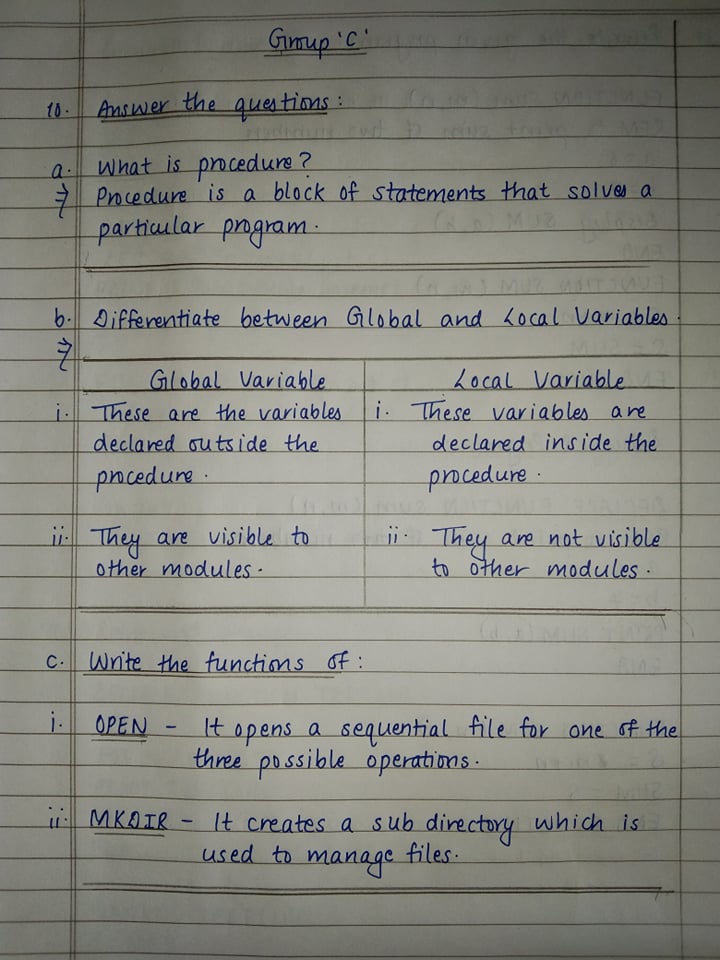 Group 'C'
10. Answer the questions :
a. What is procedure?
⇒ Procedure is a block of statements that solves a
particular program.
b. Differentiate between Global and Local Variables.
⇒
Global Variable
i. These are the variables
declared outside the
procedure.
ii. They are visible to
other modules.
Local Variable
i. These variables are
declared inside the
procedure.
ii. They are not visible
to other modules.
c. Write the functions of :
i. OPEN - It opens a sequential file for one of the
three possible operations.
ii. MKDIR - It creates a sub directory which is
used to manage files.